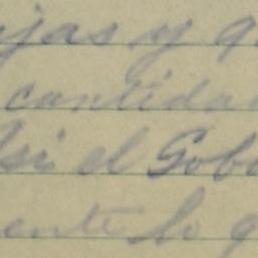 jas y q
cantida
Asi el Gob
ente lo q